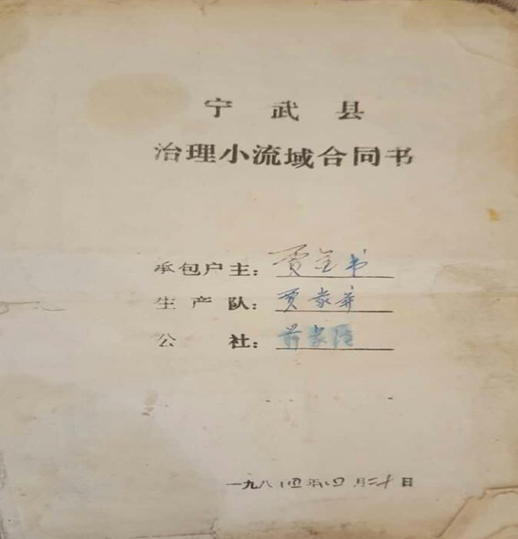 宁武县
治理小流域合同书
承包户主：贾全书
生产队：贾家
公社：家
一九八四年四月三十日